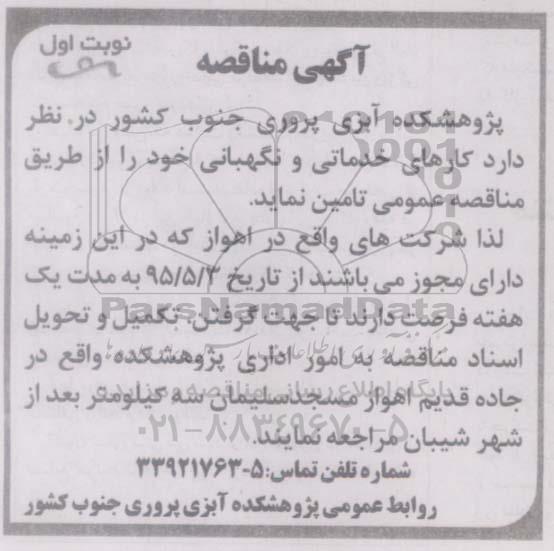 نوبت اول
آگهی مناقصه
پژوهشکده آبزی پروری جنوب کشور در نظر
دارد کارهای خدماتی و نگهبانی خود را از طریق
مناقصه عمومی تامین نماید.
لذا شرکت های واقع در اهواز که در این زمینه
دارای مجوز می باشند از تاریخ ۹۵/۵/۳ به مدت یک
ParsNamadData
هفته فرصت دارند تا جهت گرفتن، تکمیل و تحویل
اسناد مناقصه به امور اداری پژوهشکده واقع در
جاده قدیم اهواز مسجدسلیمان سه کیلومتر بعد از
شهر شیبان مراجعه نمایند.
۰۲۱-۸۸۳۴۹۶۷۰-۵
شماره تلفن تماس: ۵-۳۳۹۲۱۷۶۳
روابط عمومی پژوهشکده آبزی پروری جنوب کشور